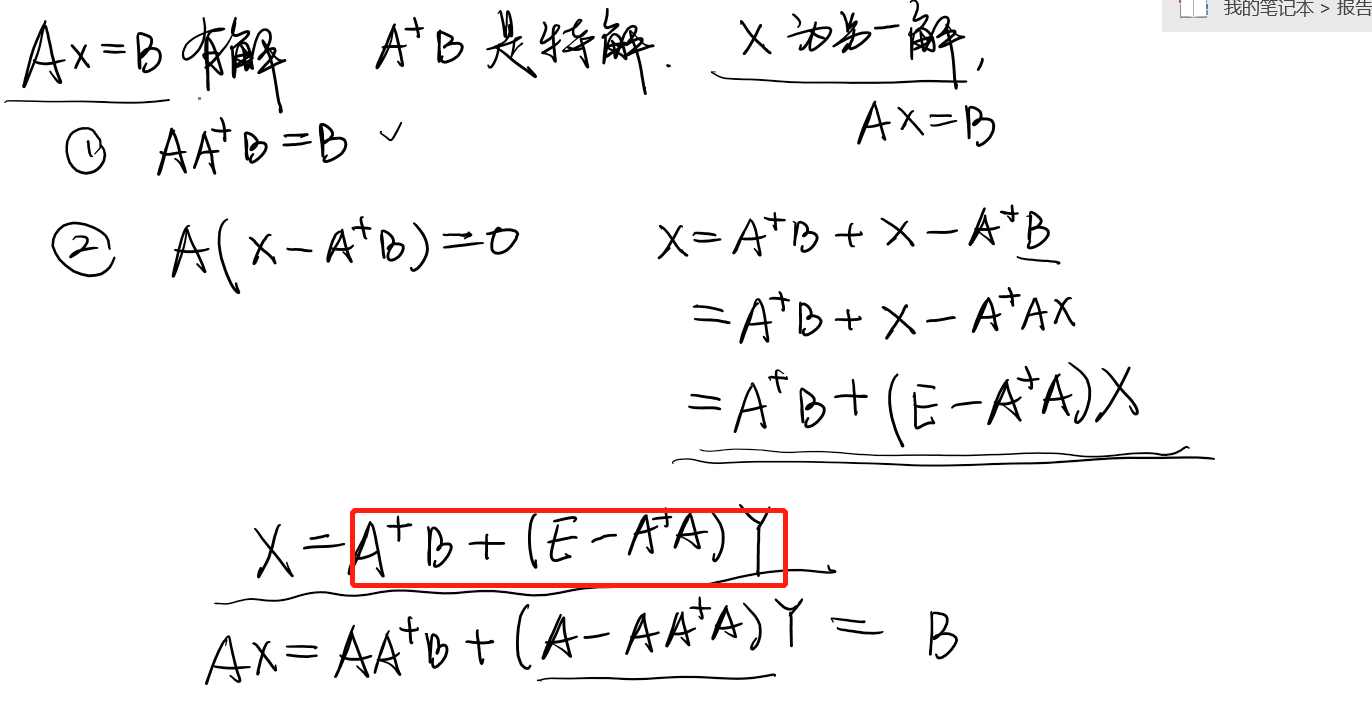 我的笔记本 > 报告
Ax=B 有解 A⁺B 是特解. X 为另一解,
AX=B
① AA⁺B=B ✓
② A(X-A⁺B)=0
X=A⁺B+X-A⁺B
=A⁺B+X-A⁺AX
=A⁺B+(E-A⁺A)X
X=A⁺B+(E-A⁺A)Y
AX=AA⁺B+(A-AA⁺A)Y=B